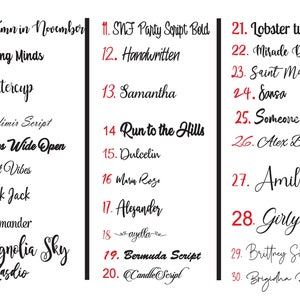 umn in November
ng Minds
tercup
limir Script
s Wide Open
t Vibes
k Jack
mander
gnolia Sky
asdio
11. SNF Party Script Bold
12. Handwritten
13. Samantha
14 Run to the Hills
15. Dulcelin
16 Mum Rose
17. Alexander
18 ayella
19. Bermuda Script
20. CandleScript
21. Lobster tw
22. Miracle D
23. Saint M
24. Sansa
25. Someone
26. Alex B
27. Amil
28. Girly
29. Brittney S
30. Brigidna